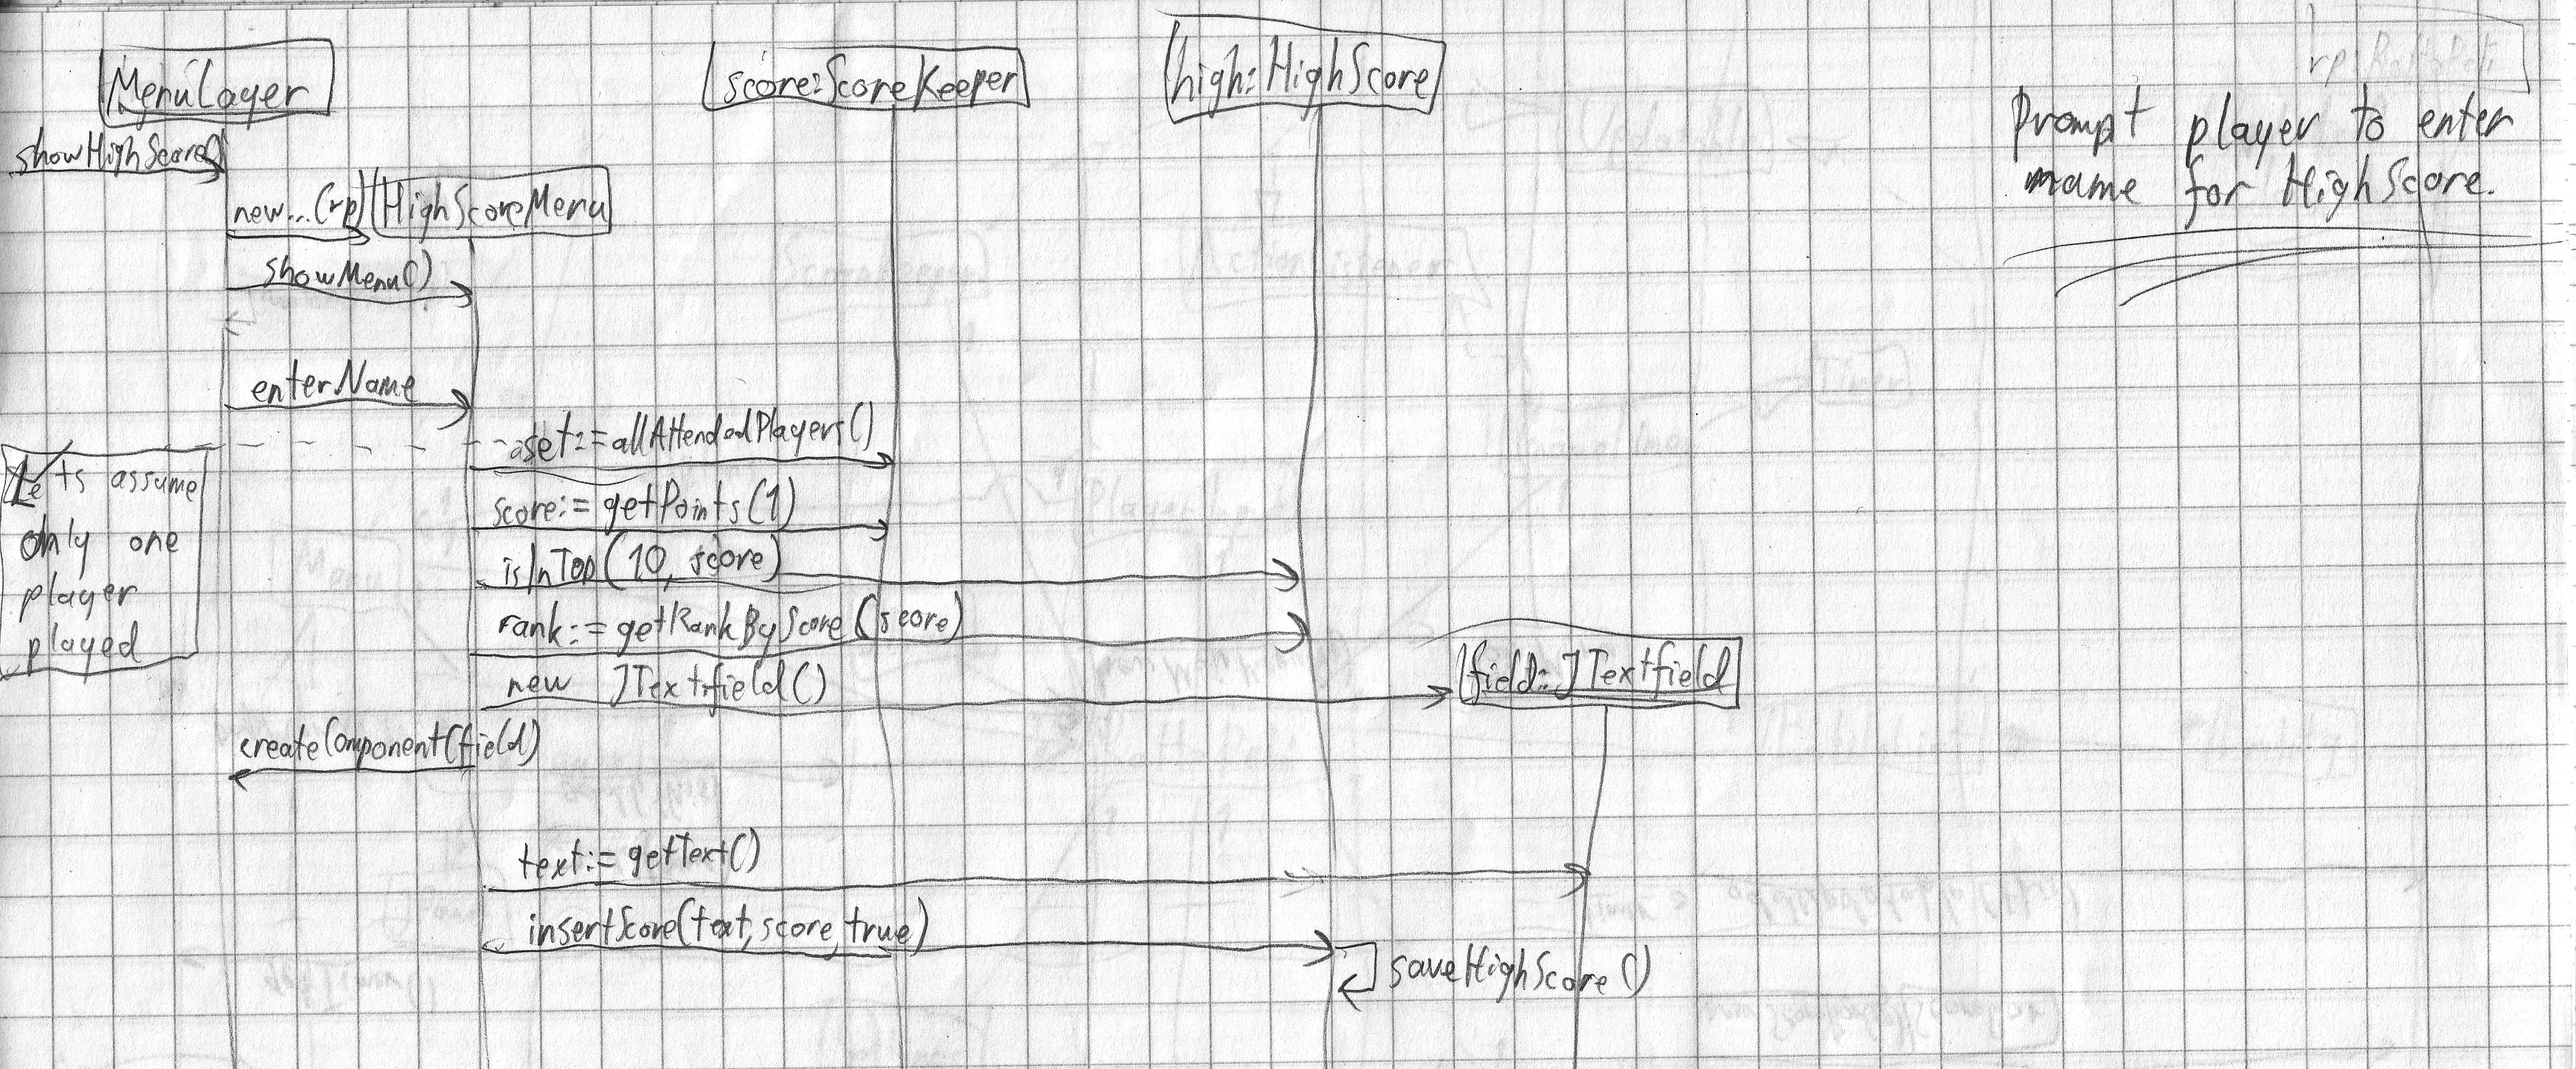 MenuLayer
score:ScoreKeeper
high:HighScore
Prompt player to enter
name for HighScore.
showHighScore()
new...(rp)
HighScoreMenu
showMenu()
enterName
set:=allAttendedPlayers()
Lets assume
only one
player
played
score:=getPoints(1)
isInTop(10, score)
rank:=getRankByScore(score)
new JTextfield()
field:JTextfield
createComponent(field)
text:=getText()
insertScore(text,score,true)
saveHighScore()